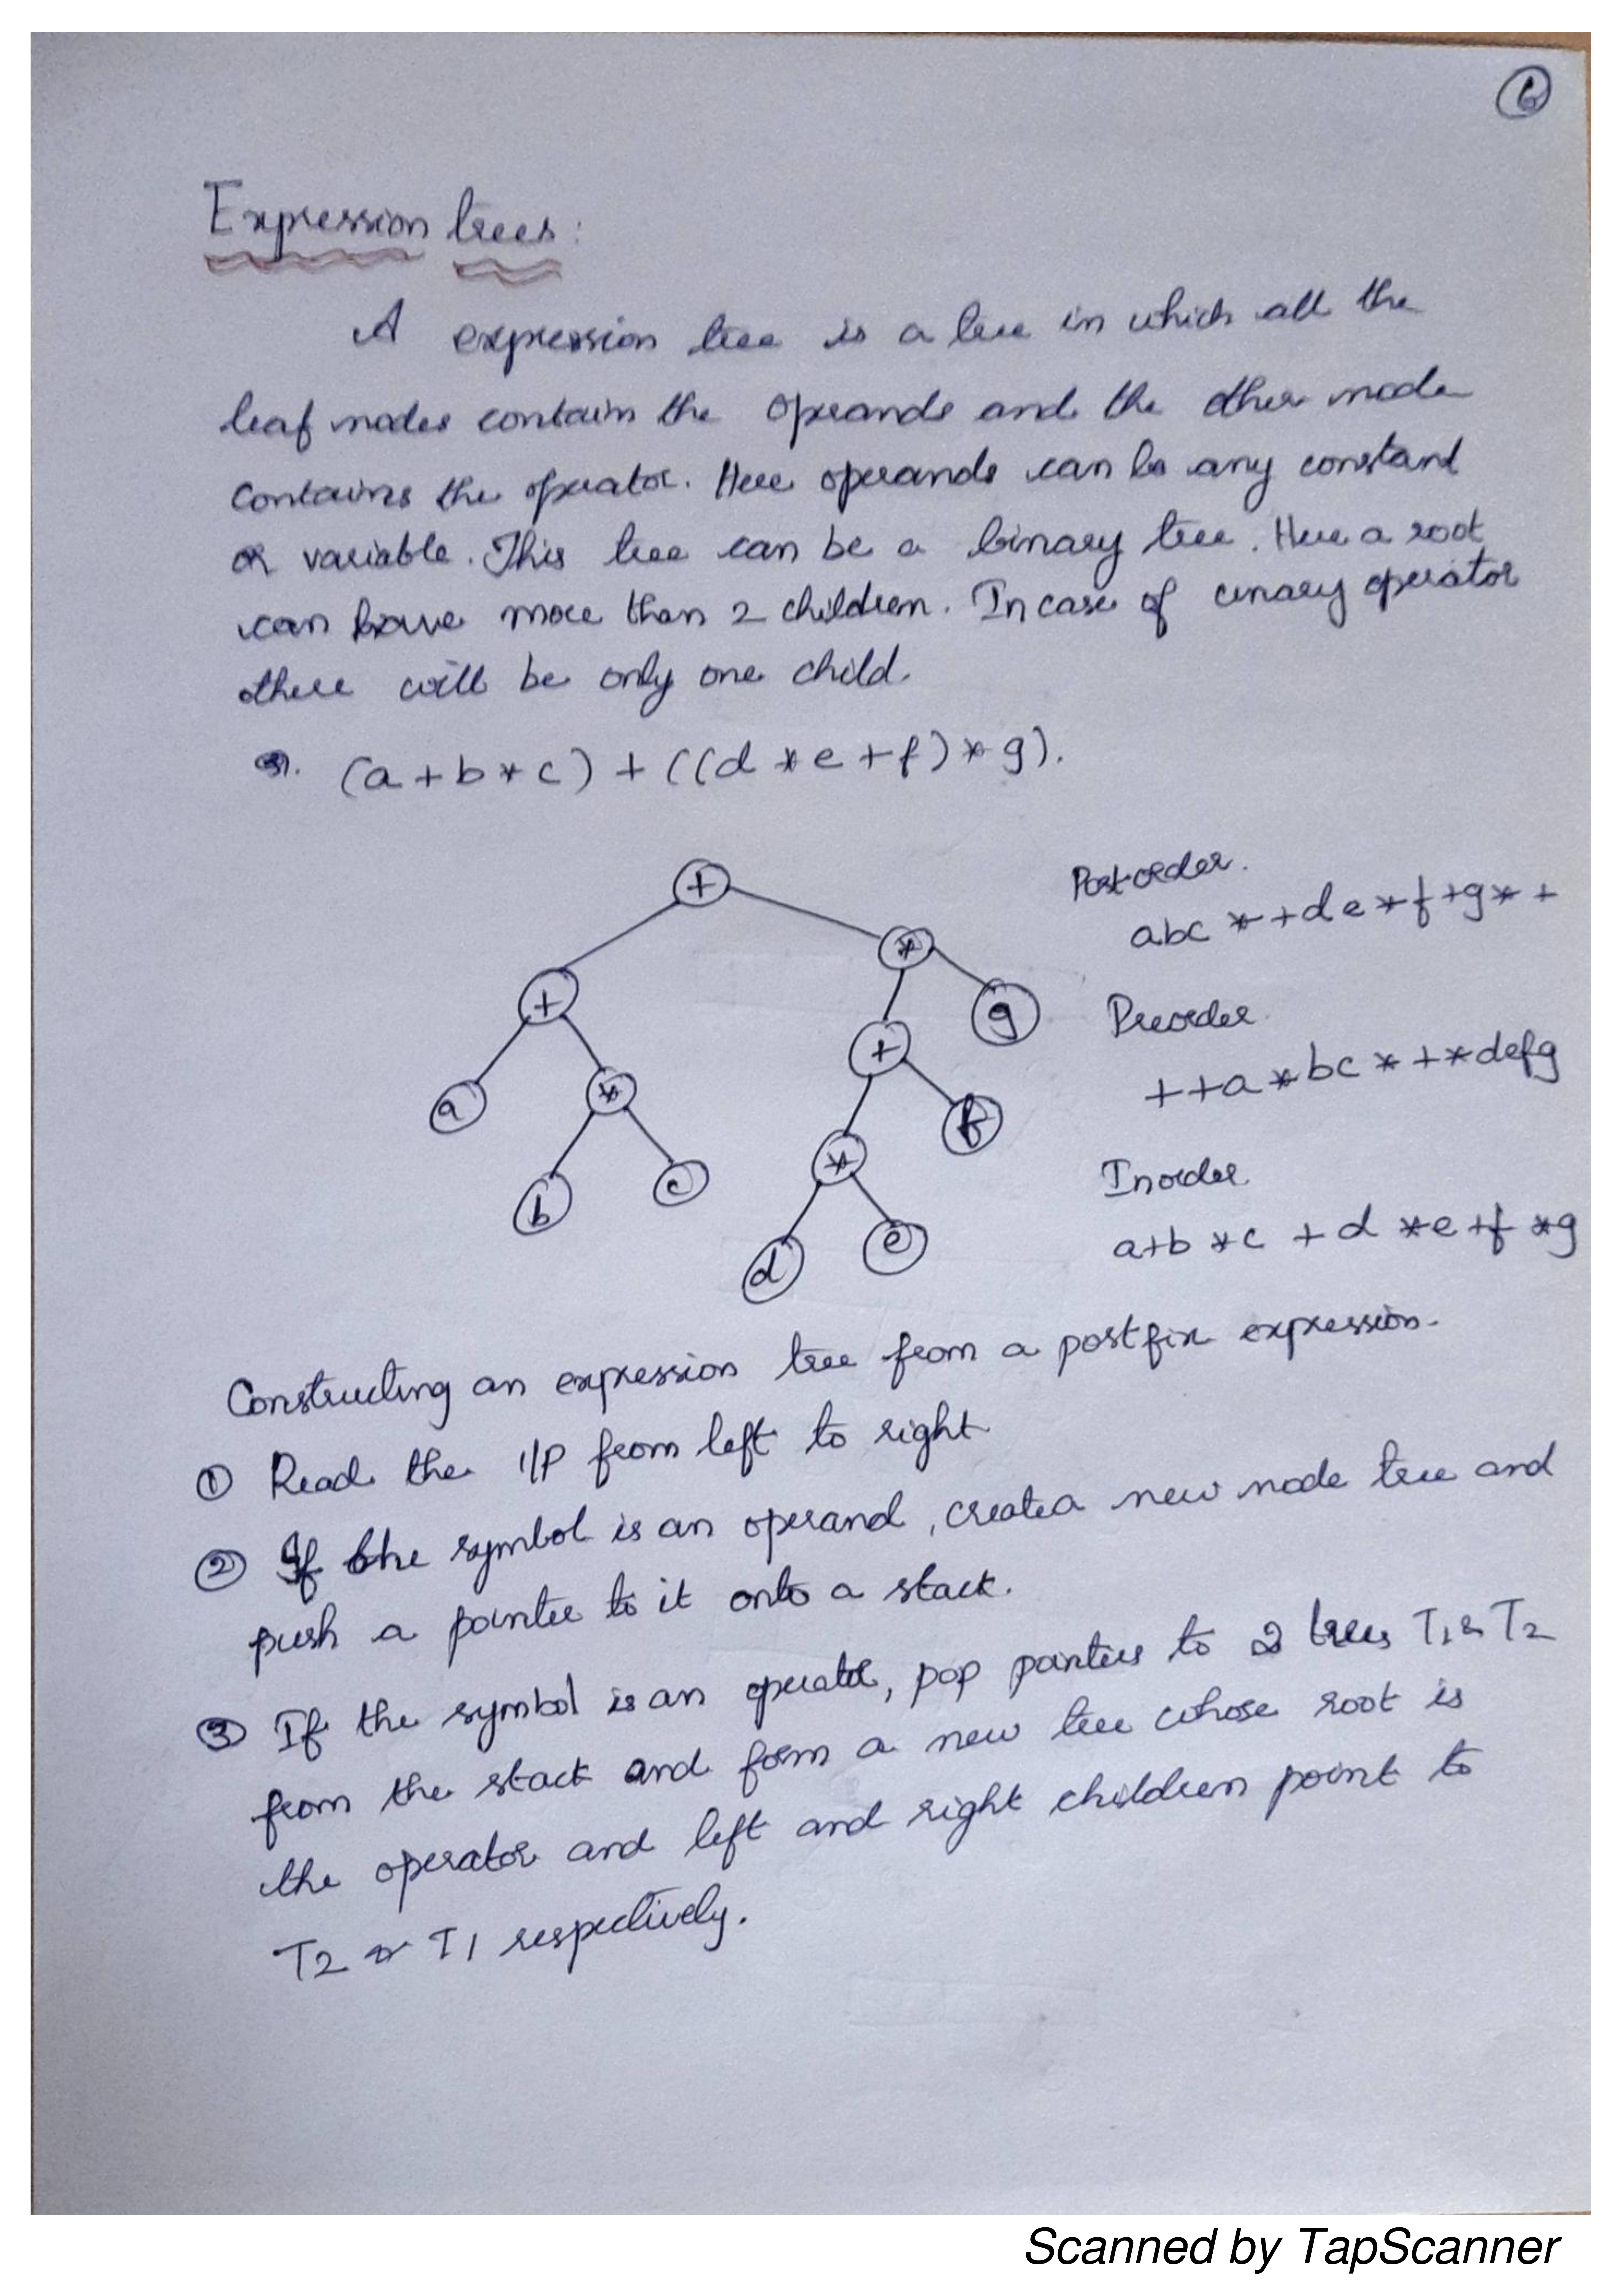 6
Expression trees:
A expression tree is a tree in which all the
leaf nodes contain the operands and the other node
contains the operator. Here operands can be any constant
or variable. This tree can be a binary tree. Here a root
can have more than 2 children. In case of unary operator
there will be only one child.
eg. (a+b*c) + ((d*e+f)*g).
+
*
+
g
+
a
*
f
b
c
*
d
e
Postorder.
abc*+de*f+g*+
Preorder
++a*bc*+*defg
Inorder
a+b*c+d*e+f*g
Constructing an expression tree from a postfix expression.
① Read the I/P from left to right
② If the symbol is an operand, create a new node tree and
push a pointer to it onto a stack.
③ If the symbol is an operator, pop pointers to 2 trees T1 & T2
from the stack and form a new tree whose root is
the operator and left and right children point to
T2 & T1 respectively.
Scanned by TapScanner